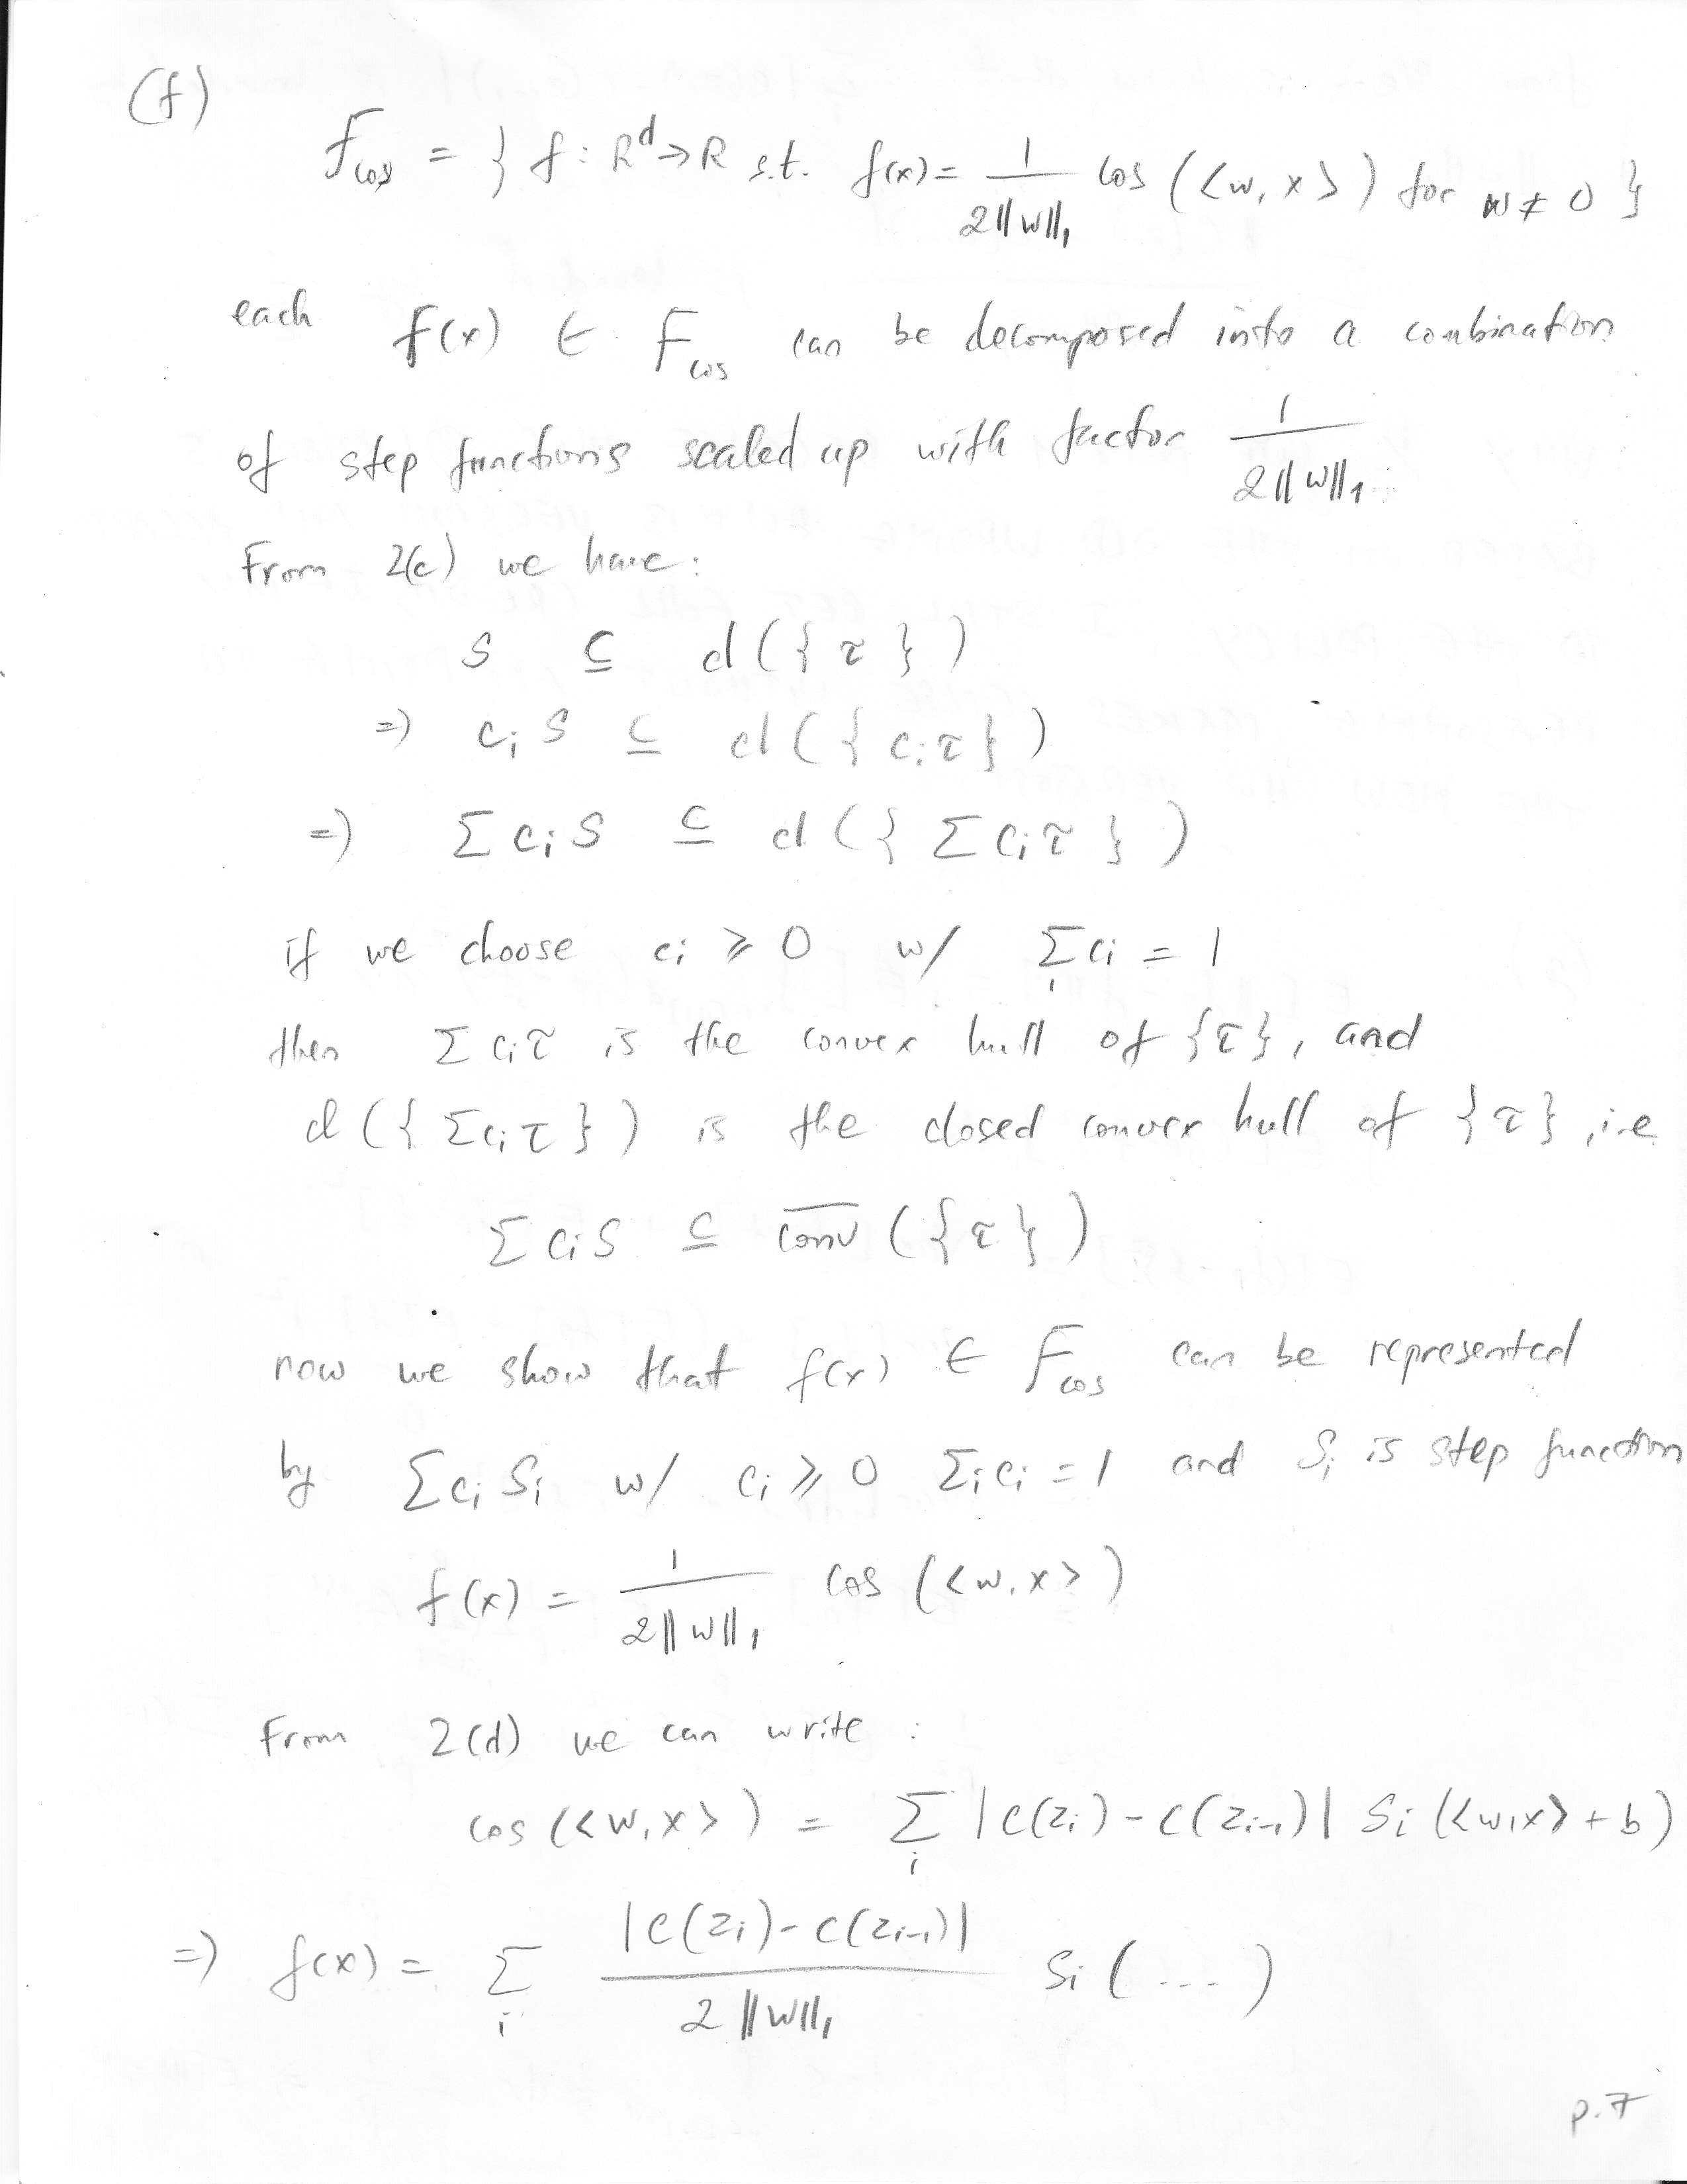 (f)
F_cos = { f : R^d → R s.t. f(x) = 1 / (2||w||_1) cos (<w, x>) for w ≠ 0 }
each f(x) ∈ F_cos can be decomposed into a combination
of step functions scaled up with factor 1 / (2||w||_1)
From 2(c) we have:
S ⊆ cl({τ})
=> c_i S ⊆ cl({c_i τ})
=> Σ c_i S ⊆ cl({Σ c_i τ})
if we choose c_i ≥ 0 w/ Σ_i c_i = 1
then Σ c_i τ is the convex hull of {τ}, and
cl({Σ c_i τ}) is the closed convex hull of {τ}, i.e
Σ c_i S ⊆ \overline{conv} ({τ})
now we show that f(x) ∈ F_cos can be represented
by Σ c_i S_i w/ c_i ≥ 0 Σ_i c_i = 1 and S_i is step function
f(x) = 1 / (2||w||_1) cos (<w, x>)
From 2(d) we can write :
cos (<w, x>) = Σ_i |c(z_i) - c(z_{i-1})| S_i (<w, x> + b)
=> f(x) = Σ_i |c(z_i) - c(z_{i-1})| / (2||w||_1) S_i (...)
p.7